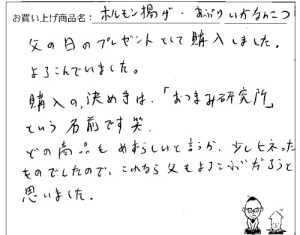 お買い上げ商品名：ホルモン揚げ・あぶりいかなんこつ
父の日のプレゼントとして購入しました。
よろこんでいました。
購入の、決めては、「おつまみ研究所」
という名前です笑
どの商品もめずらしいと言うか、少しヒネった
ものでしたので、これなら父もよろこぶだろうと
思いました。